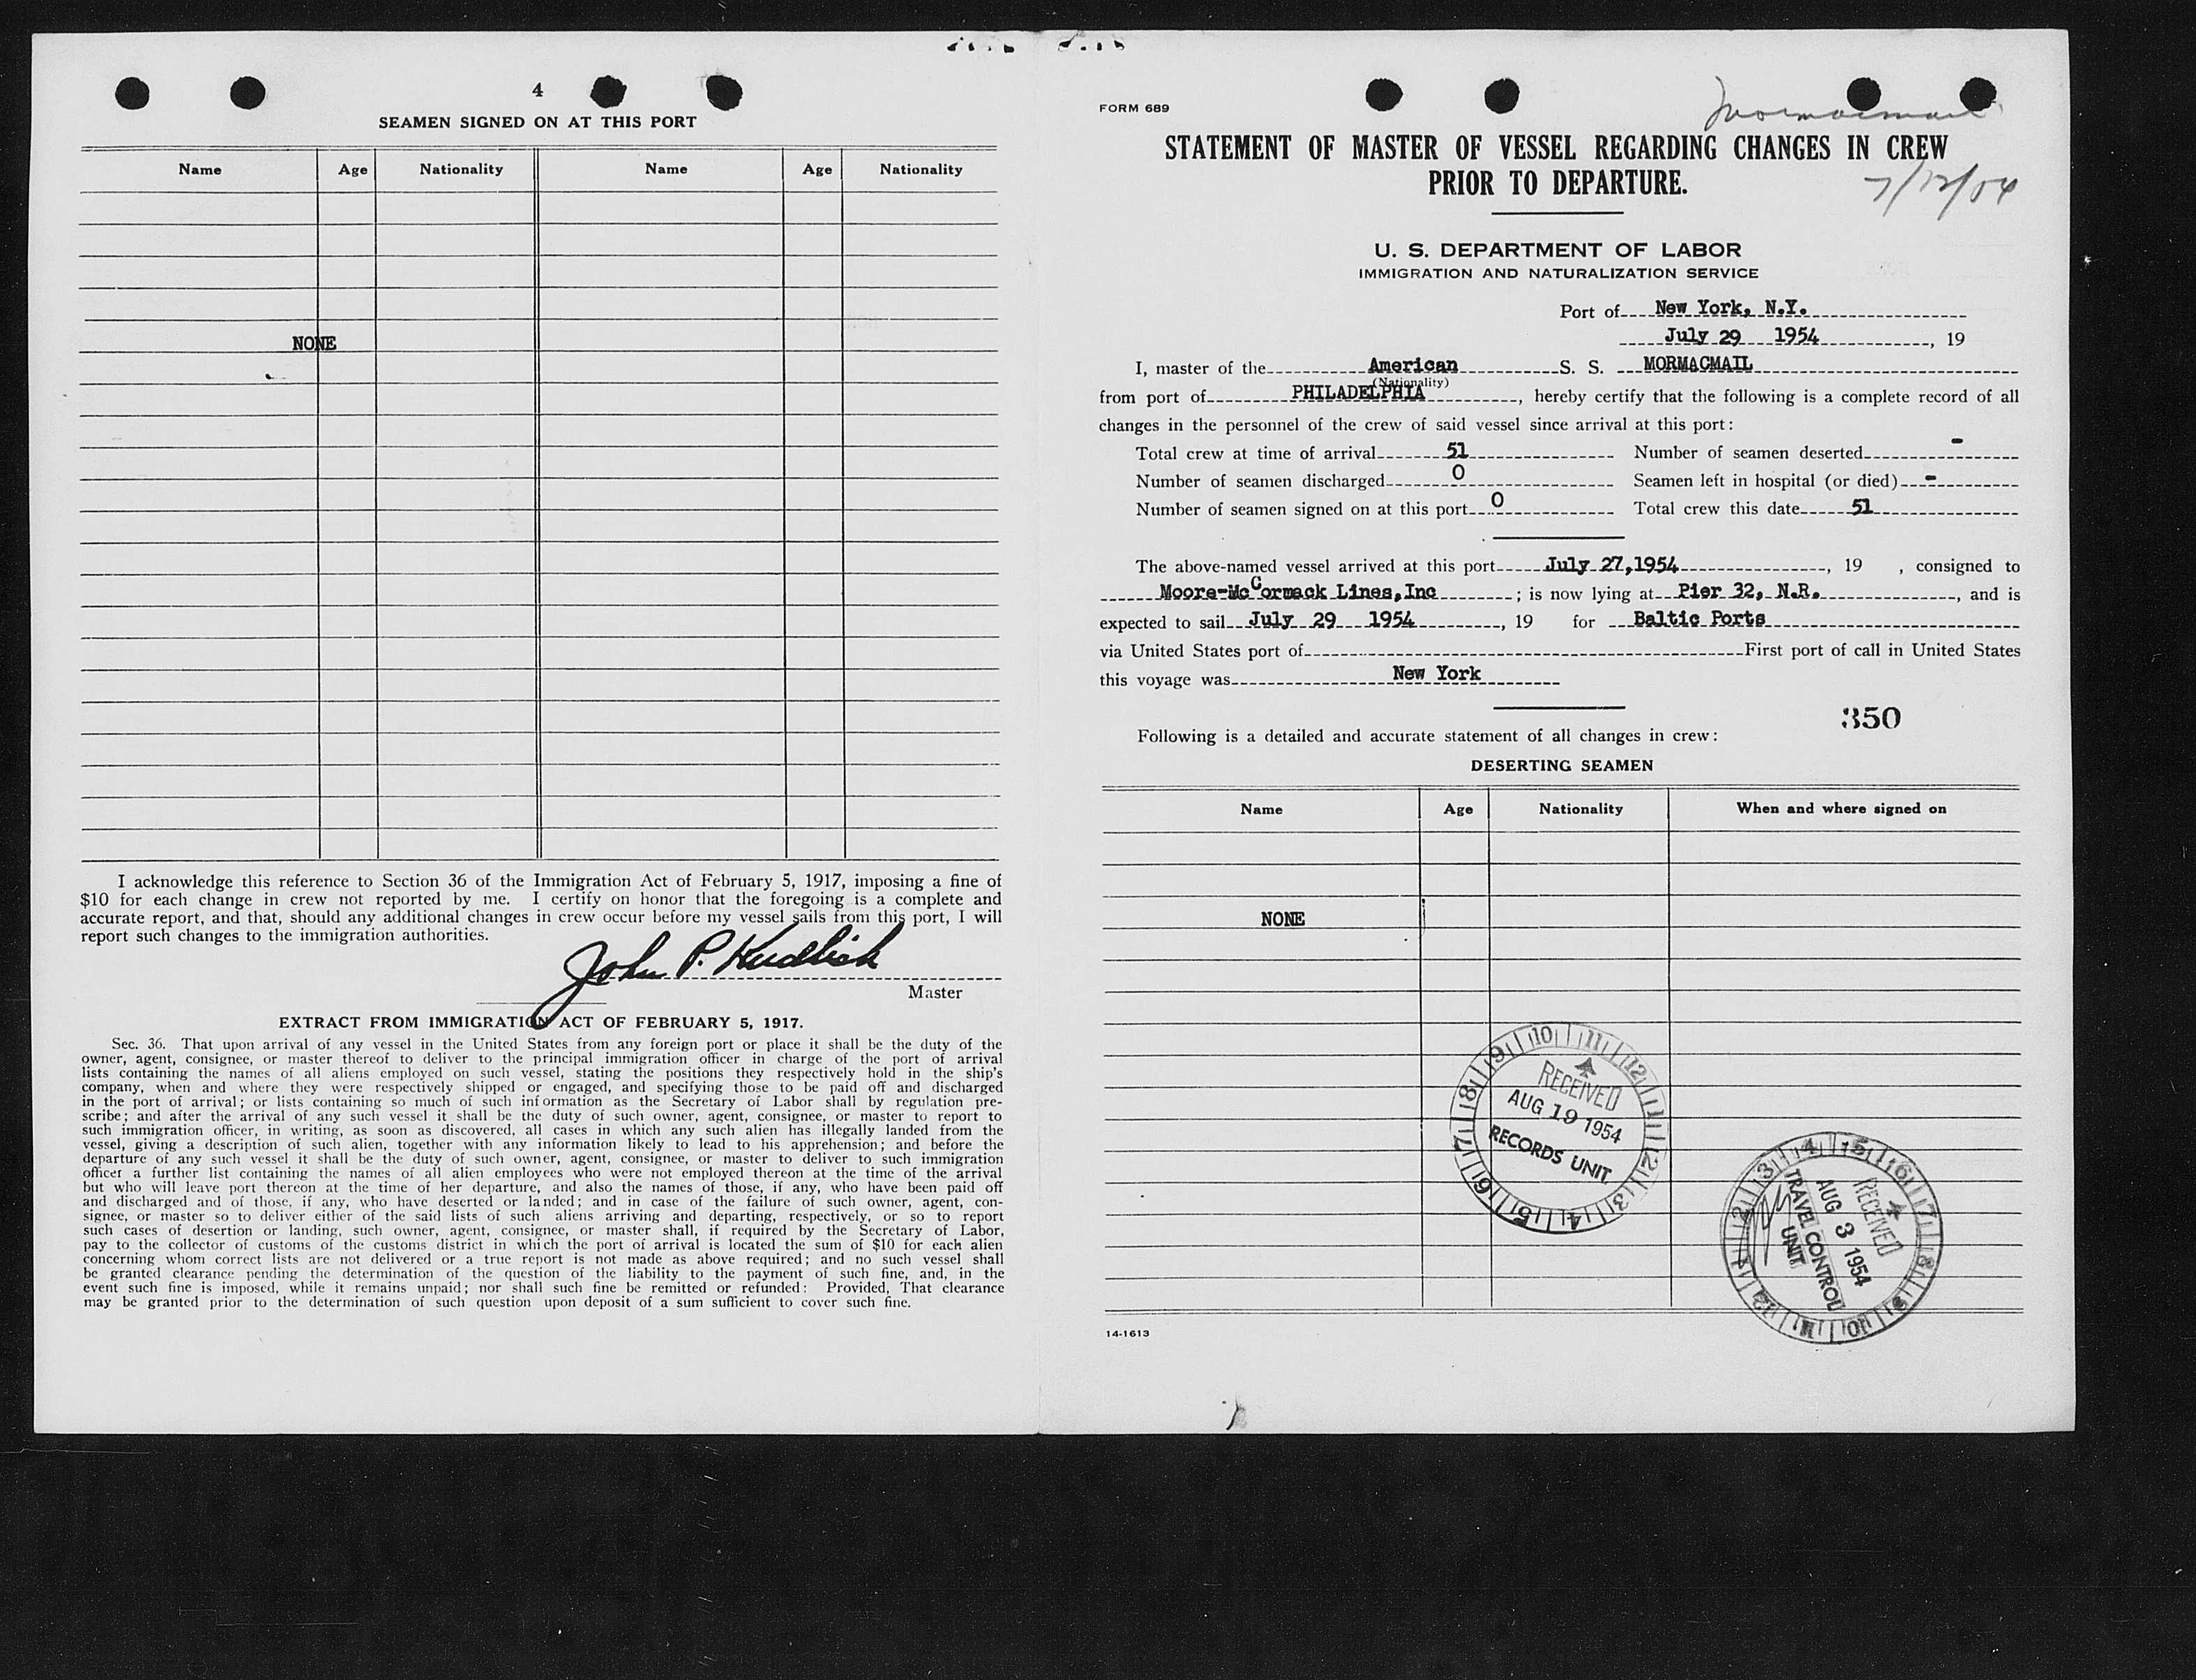 4
SEAMEN SIGNED ON AT THIS PORT
Name Age Nationality Name Age Nationality
NONE
I acknowledge this reference to Section 36 of the Immigration Act of February 5, 1917, imposing a fine of
$10 for each change in crew not reported by me. I certify on honor that the foregoing is a complete and
accurate report, and that, should any additional changes in crew occur before my vessel sails from this port, I will
report such changes to the immigration authorities.
John P.
Master
EXTRACT FROM IMMIGRATION ACT OF FEBRUARY 5, 1917.
Sec. 36. That upon arrival of any vessel in the United States from any foreign port or place it shall be the duty of the
owner, agent, consignee, or master thereof to deliver to the principal immigration officer in charge of the port of arrival
lists containing the names of all aliens employed on such vessel, stating the positions they respectively hold in the ship's
company, when and where they were respectively shipped or engaged, and specifying those to be paid off and discharged
in the port of arrival; or lists containing so much of such information as the Secretary of Labor shall by regulation pre-
scribe; and after the arrival of any such vessel it shall be the duty of such owner, agent, consignee, or master to report to
such immigration officer, in writing, as soon as discovered, all cases in which any such alien has illegally landed from the
vessel, giving a description of such alien, together with any information likely to lead to his apprehension; and before the
departure of any such vessel it shall be the duty of such owner, agent, consignee, or master to deliver to such immigration
officer a further list containing the names of all alien employees who were not employed thereon at the time of the arrival
but who will leave port thereon at the time of her departure, and also the names of those, if any, who have been paid off
and discharged and of those, if any, who have deserted or landed; and in case of the failure of such owner, agent, con-
signee, or master so to deliver either of the said lists of such aliens arriving and departing, respectively, or so to report
such cases of desertion or landing, such owner, agent, consignee, or master shall, if required by the Secretary of Labor,
pay to the collector of customs of the customs district in which the port of arrival is located the sum of $10 for each alien
concerning whom correct lists are not delivered or a true report is not made as above required; and no such vessel shall
be granted clearance pending the determination of the question of the liability to the payment of such fine, and, in the
event such fine is imposed, while it remains unpaid; nor shall such fine be remitted or refunded: Provided, That clearance
may be granted prior to the determination of such question upon deposit of a sum sufficient to cover such fine.
FORM 689
Mormacmail
STATEMENT OF MASTER OF VESSEL REGARDING CHANGES IN CREW
PRIOR TO DEPARTURE.
U. S. DEPARTMENT OF LABOR
IMMIGRATION AND NATURALIZATION SERVICE
Port of New York, N.Y.
July 29 1954, 19
I, master of the American S. S. MORMACMAIL
(Nationality)
from port of PHILADELPHIA, hereby certify that the following is a complete record of all
changes in the personnel of the crew of said vessel since arrival at this port:
Total crew at time of arrival 51 Number of seamen deserted -
Number of seamen discharged 0 Seamen left in hospital (or died) -
Number of seamen signed on at this port 0 Total crew this date 51
The above-named vessel arrived at this port July 27,1954, 19 , consigned to
Moore-McCormack Lines,Inc ; is now lying at Pier 32, N.R. , and is
expected to sail July 29 1954, 19 for Baltic Ports
via United States port of First port of call in United States
this voyage was New York
350
Following is a detailed and accurate statement of all changes in crew:
DESERTING SEAMEN
Name Age Nationality When and where signed on
NONE
10 11 12 1 2 3 4 5 6 7 8 9
RECEIVED
AUG 19 1954
RECORDS UNIT
1 2 3 4 5 6 7 8 9 10 11 12
RECEIVED
AUG 3 1954
TRAVEL CONTROL
UNIT
14-1613